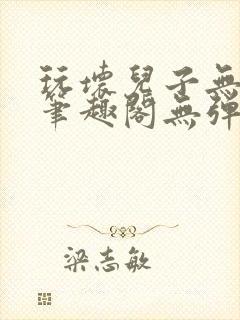 玩壞兒子無
筆趣閣無彈
梁志敏